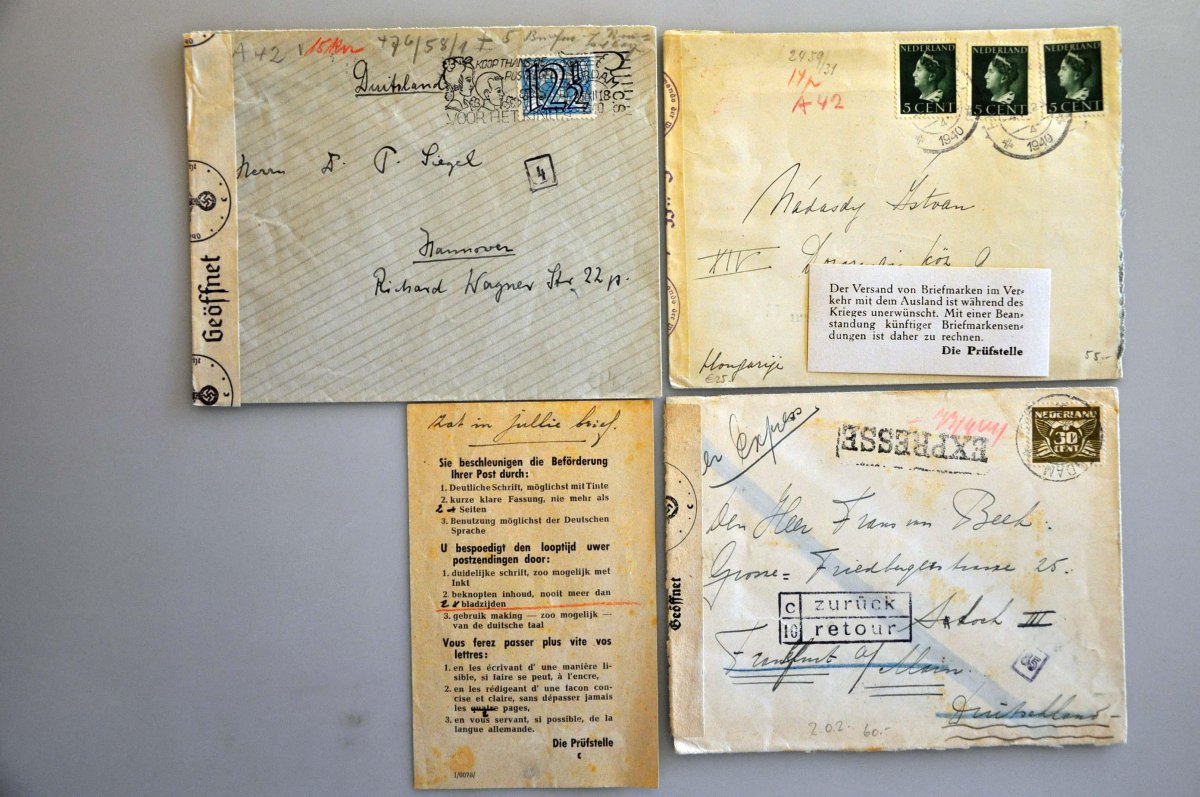 A 42
15
Duitsland
KOOP THANS
12½
VOOR HET KIND
Herrn D. P. Siegel
4
Hannover
Richard Wagner Str. 22 p.
Geöffnet
c
2459/31
A 42
NEDERLAND
5 CENT
NEDERLAND
5 CENT
NEDERLAND
5 CENT
1940
1940
Nádasdy Istvan
XIV
Der Versand von Briefmarken im Ver-
kehr mit dem Ausland ist während des
Krieges unerwünscht. Mit einer Bean-
standung künftiger Briefmarkensen-
dungen ist daher zu rechnen.
Die Prüfstelle
Hongarije
€25
55.-
Zat in jullie brief.
Sie beschleunigen die Beförderung
Ihrer Post durch:
1. Deutliche Schrift, möglichst mit Tinte
2. kurze klare Fassung, nie mehr als
2 Seiten
3. Benutzung möglichst der Deutschen
Sprache
U bespoedigt den looptijd uwer
postzendingen door:
1. duidelijke schrift, zoo mogelijk met
Inkt
2. beknopten inhoud, nooit meer dan
2 bladzijden
3. gebruik making — zoo mogelijk —
van de duitsche taal
Vous ferez passer plus vite vos
lettres:
1. en les écrivant d' une manière li-
sible, si faire se peut, à l'encre,
2. en les rédigeant d' une facon con-
cise et claire, sans dépasser jamais
les quatre pages,
3. en vous servant, si possible, de la
langue allemande.
Die Prüfstelle
c
1/0078/
er Express
EXPRESSE
NEDERLAND
30
CENT
DAM
Den Heer Frans van Beek.
Grosse = Friedbergerstrasse 25.
c zurück
10 retour
III
Frankfurt a/Main.
Deutschland
Geöffnet
c
2.0.2.
60.-